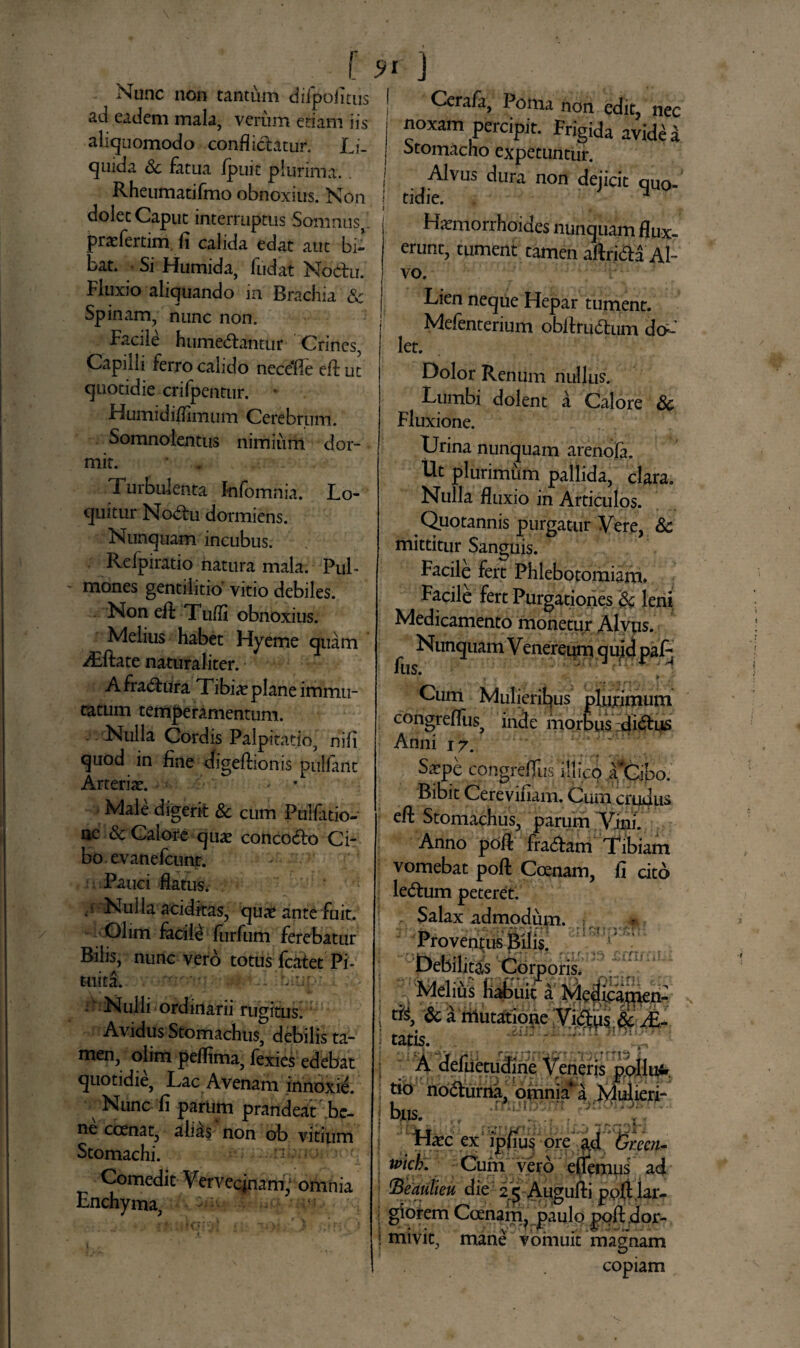 [ 91 ]
Nunc non tantùm diſpoſitus
ad eadem mala, verùm etiam iis
aliquomodo conflictatur. Li-
quida & fatua ſpuit plurima.
Rheumatiſmo obnoxius. Non
dolet Caput interruptus Somnus,
præſertim ſi calida edat aut bi-
bat. Si Humida, ſudat Noctu.
Fluxio aliquando in Brachia &
Spinam, nunc non.
Facilè humectantur Crines,
Capilli ferro calido neceſſe eſt ut
quotidie criſpentur.
Humidiſſimum Cerebrum.
Somnolentus nimiùm dor-
mit.
Turbulenta Inſomnia. Lo-
quitur Noctu dormiens.
Nunquam incubus.
Reſpiratio natura mala. Pul-
mones gentilitio vitio debiles.
Non eſt Tuſſi obnoxius.
Melius habet Hyeme quàm
Æſtate naturaliter.
A fractura Tibiæ plane immu-
tatum temperamentum.
Nulla Cordis Palpitatio, niſi
quod in fine digeſtionis pulſant
Arteriæ.
Malè digerit & cum Pulſatio-
ne & Calore quæ concocto Ci-
bo evaneſcunt.
Pauci flatus.
Nulla aciditas, quæ ante fuit.
Olim facilè furſum ferebatur
Bilis, nunc verò totus ſcatet Pi-
tuitâ.
Nulli ordinarii rugitus.
Avidus Stomachus, debilis ta-
men, olim peſſima, ſexies edebat
quotidiè, Lac Avenam innoxiè.
Nunc ſi parùm prandeat be-
nè cœnat, aliàs non ob vitium
Stomachi.
Comedit Vervecinam, omnia
Enchyma,
Ceraſa, Poma non edit, nec
noxam percipit. Frigida avidè à
Stomacho expetuntur.
Alvus dura non dejicit quo-
tidie.
Hæmorrhoides nunquam flux-
erunt, tument tamen aſtrictâ Al-
vo.
Lien neque Hepar tument.
Meſenterium obſtructum do-
let.
Dolor Renum nullus.
Lumbi dolent à Calore &
Fluxione.
Urina nunquam arenoſa.
Ut plurimùm pallida, clara.
Nulla fluxio in Articulos.
Quotannis purgatur Vere, &
mittitur Sanguis.
Facilè fert Phlebotomiam.
Facilè fert Purgationes & leni
Medicamento monetur Alvus.
Nunquam Venereum quid paſ-
ſus.
Cum Mulieribus plurimum
congreſſus, inde morbus dictus
Anni 17.
Sæpè congreſſus illico à Cibo.
Bibit Cereviſiam. Cum crudus
eſt Stomachus, parum Vini.
Anno poſt fractam Tibiam
vomebat poſt Cœnam, ſi citò
lectum peteret.
Salax admodùm.
Proventus Bilis.
Debilitas Corporis.
Melius habuit à Medicamen-
tis, & à mutatione Victus & Æ-
tatis.
A deſuetudine Veneris pollu-
tio nocturna, omnia à Mulieri-
bus.
Hæc ex ipſius ore ad Green-
wich. Cum verò eſſemus ad
Beaulieu die 25 Auguſti poſt lar-
giorem Cœnam, paulo poſt dor-
mivit, manè vomuit magnam
copiam